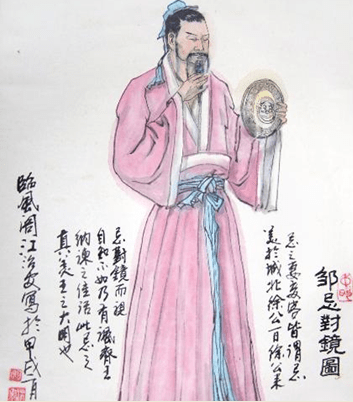 鄒忌對鏡圖
忌之妻妾皆謂忌
美於城北徐公一日徐公来
忌對鏡而視
自不如乃有諷齊王
納諫之佳話此忌之
真美王之大明也
臨風閣江寫於甲戌月